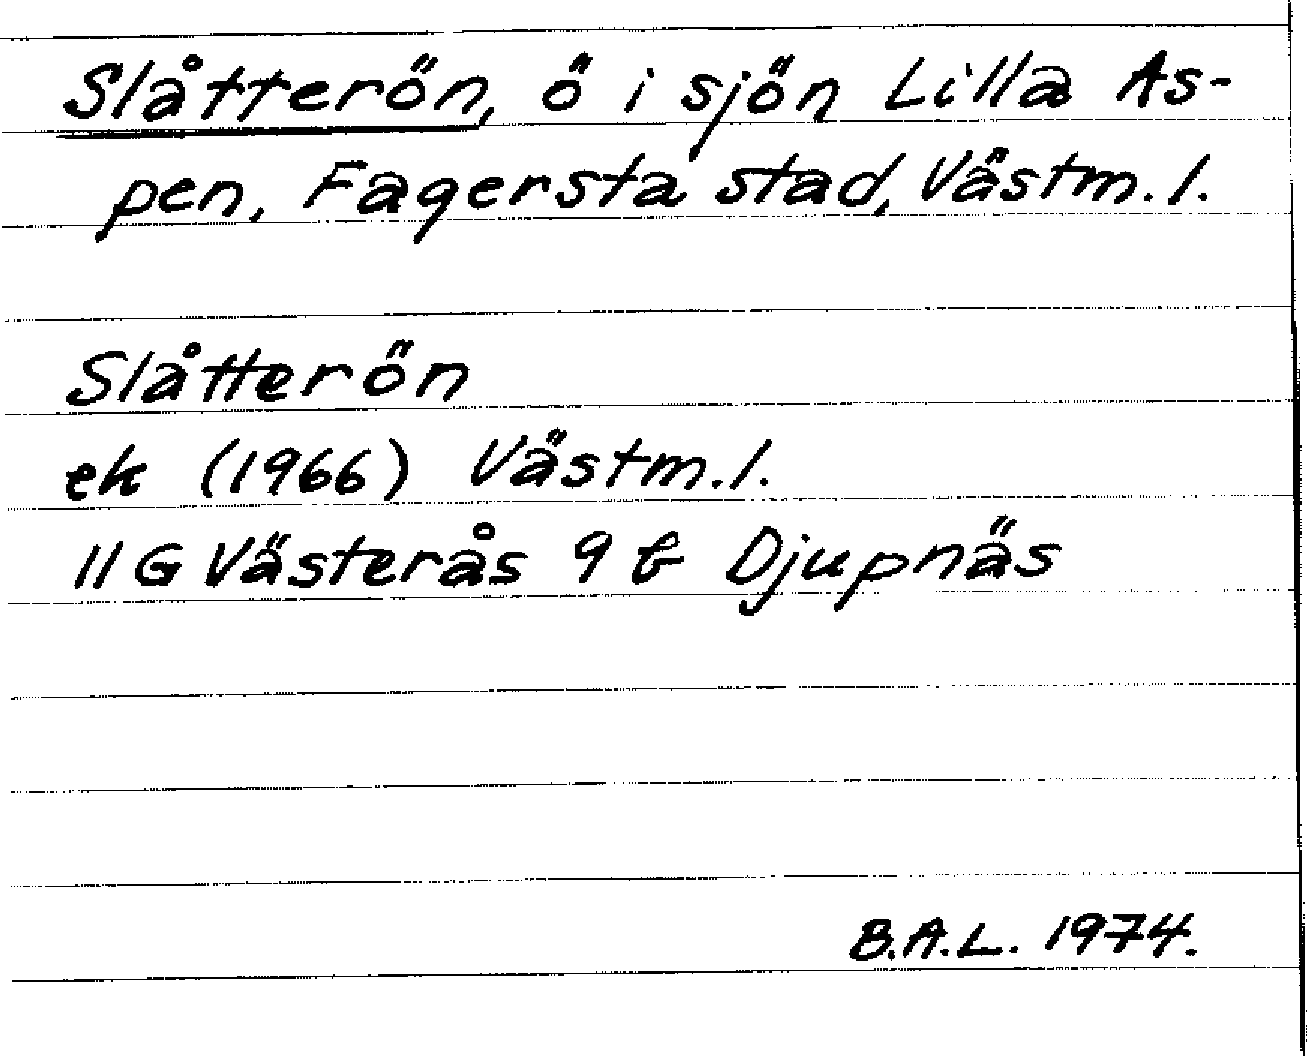 Slåtterön, ö i sjön Lilla As-
pen, Fagersta stad, Västm. l.
Slåtterön
ek (1966) Västm. l.
11 G Västerås 9 b Djupnäs
B.A.L. 1974.